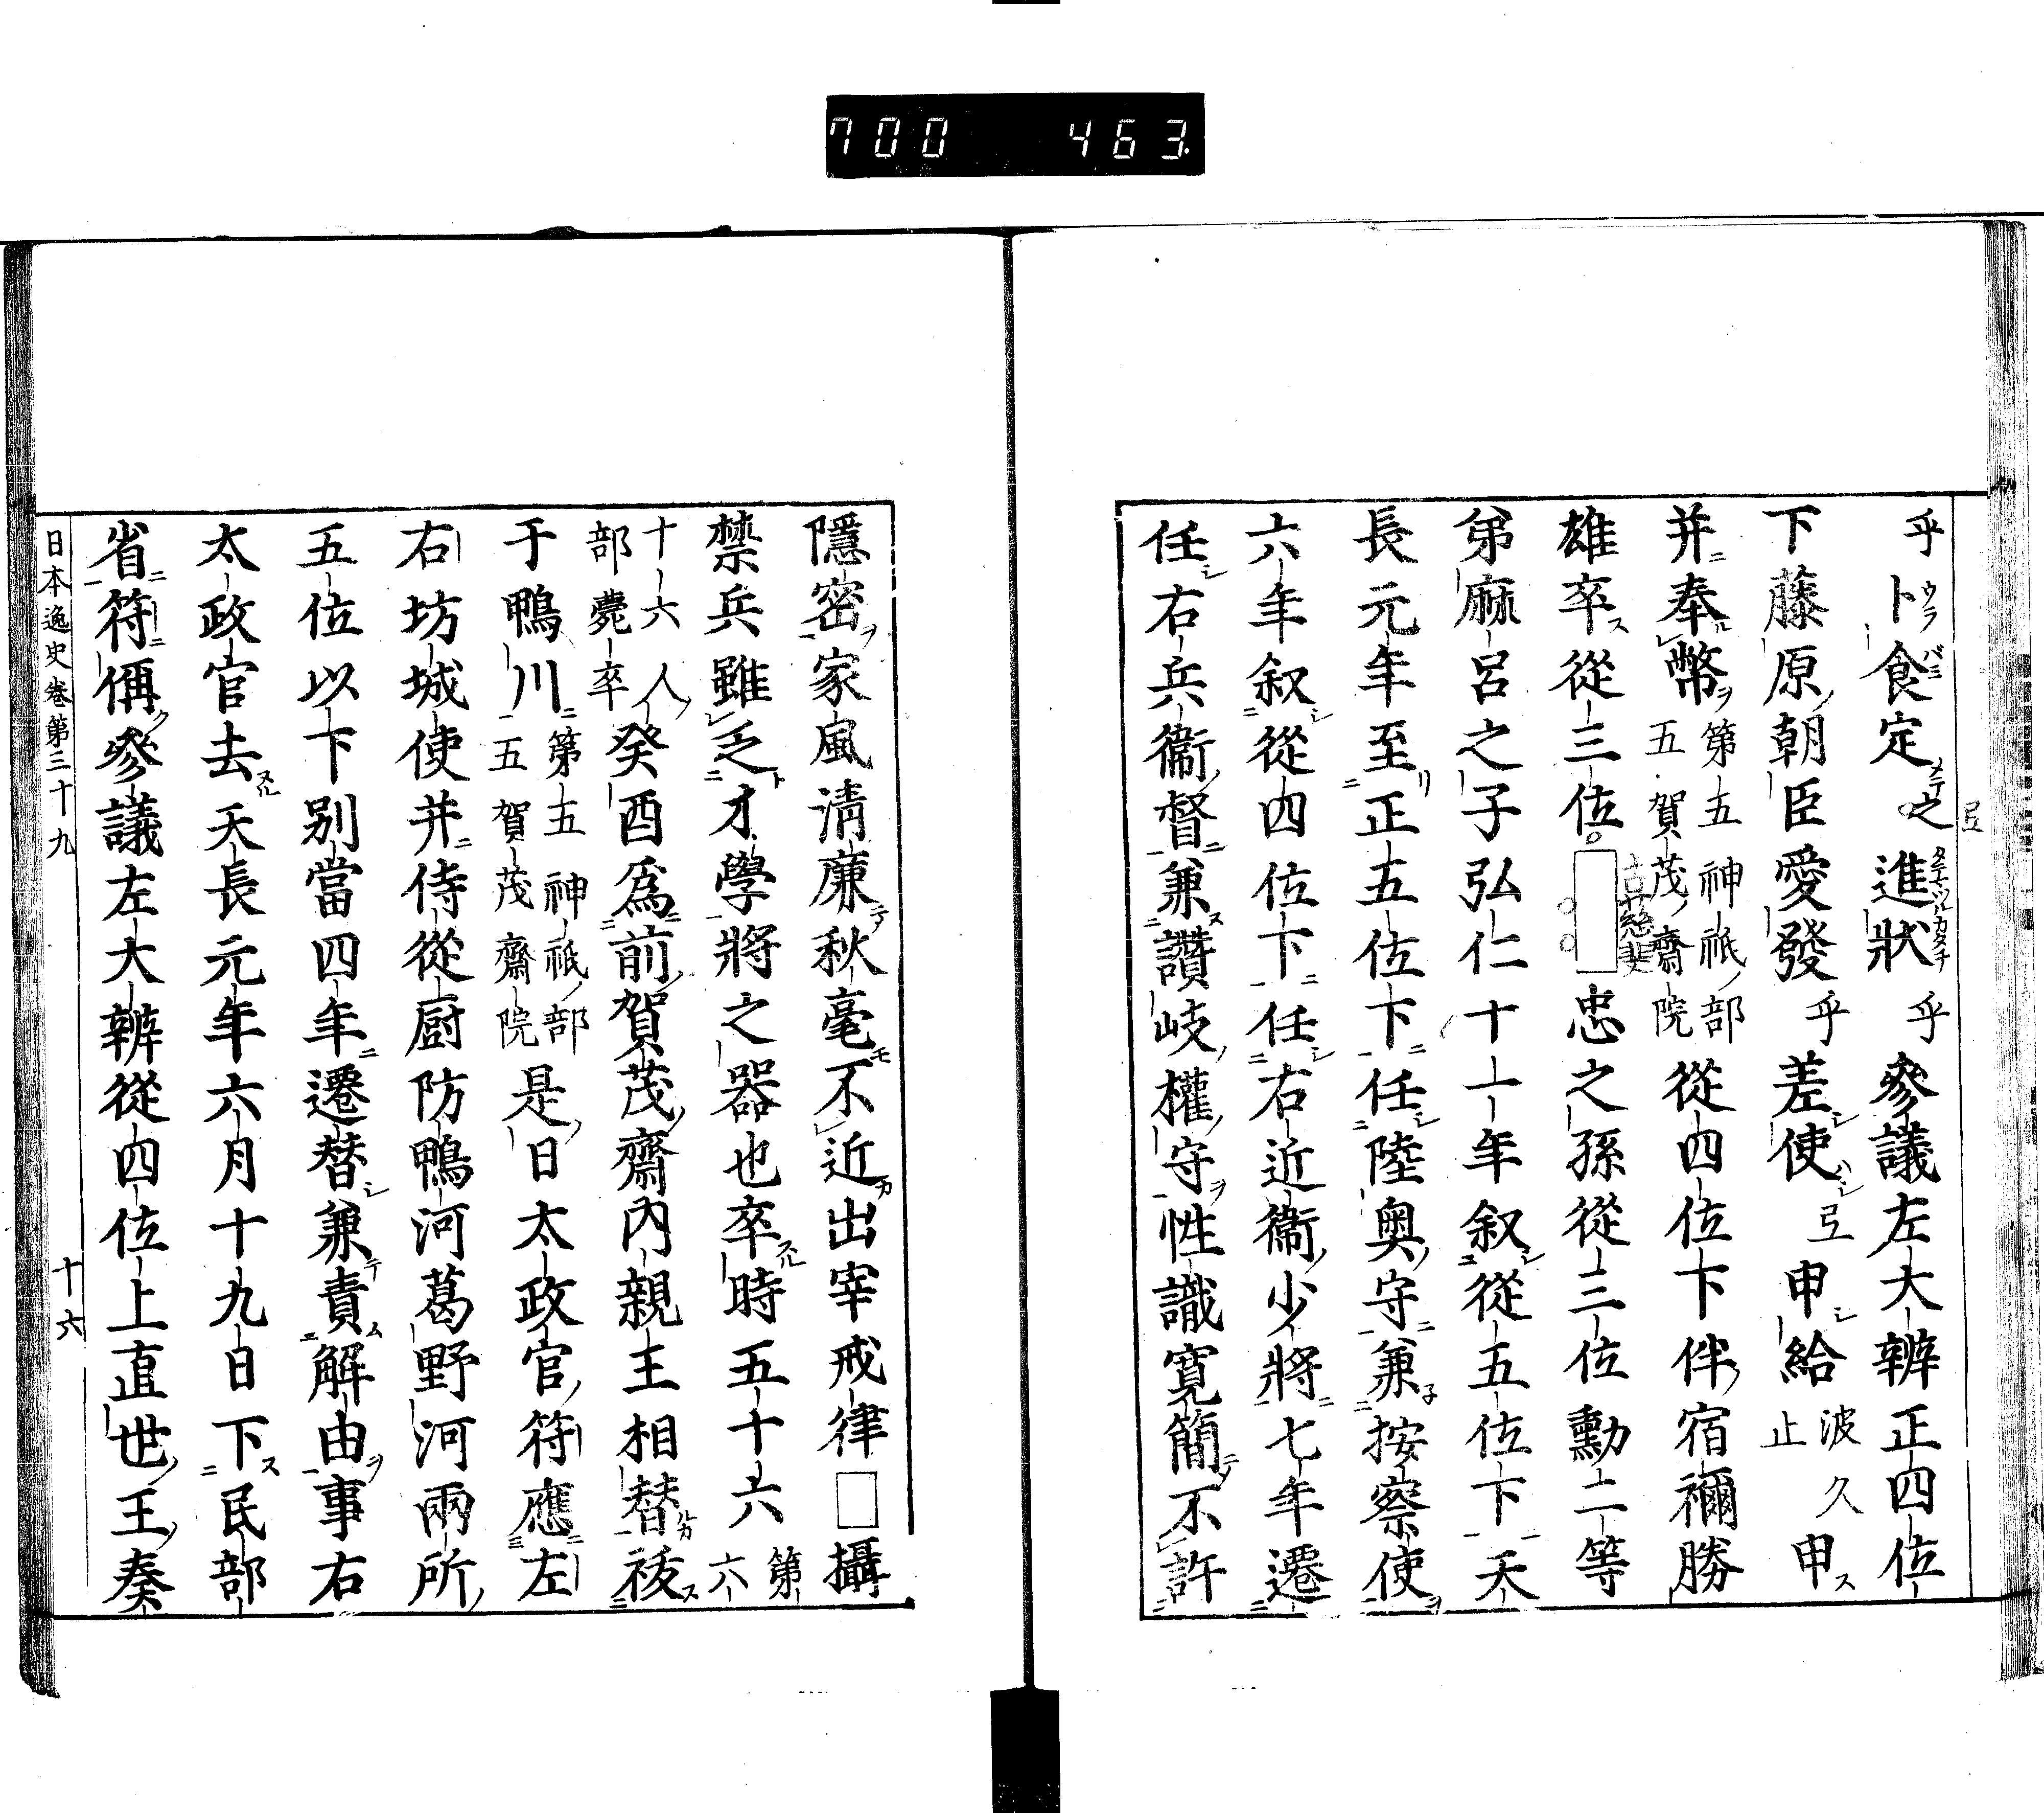 700 463
乎卜食定之進狀乎參議左大辨正四位
下藤原朝臣愛發乎差使弖申給波久止申
并奉幣第五神祇部五賀茂齋院從四位下伴宿禰勝
雄卒從三位□古慈斐忠之孫從三位勳二等
弟麻呂之子弘仁十一年叙從五位下天
長元年至正五位下任陸奧守兼按察使
六年叙從四位下任右近衞少將七年遷
任右兵衞督兼讚岐權守性識寬簡不許
隱密家風清廉秋毫不近出宰戒律□攝
禁兵雖乏才學將之器也卒時五十六第六
十六人部薨卒癸酉爲前賀茂齋內親王相替祓
于鴨川第五神祇部五賀茂齋院是日太政官符應左
右坊城使并侍從厨防鴨河葛野河兩所
五位以下別當四年遷替兼責解由事右
太政官去天長元年六月十九日下民部
省符偁參議左大辨從四位上直世王奏
日本逸史卷第三十九 十六